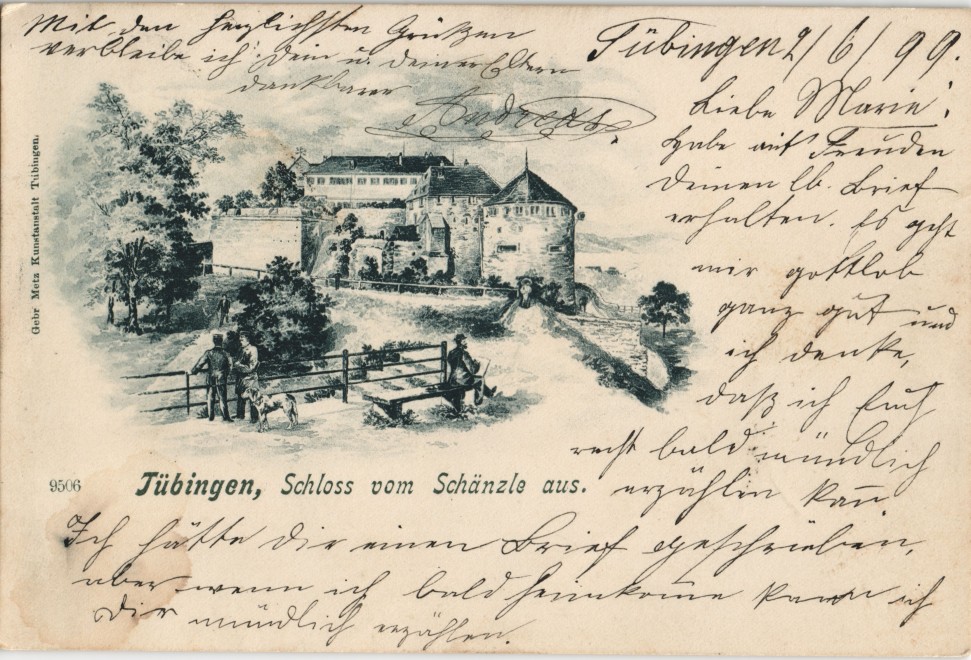 Tübingen 2/6/99.
Liebe Marie!
Habe mit Freuden
Deinen lb. Brief
erhalten. Es geht
mir gottlob
ganz gut und
ich denke,
daß ich Euch
recht bald mündlich
erzählen kan̄.
Ich hätte Dir einen Brief geschrieben,
aber wenn ich bald heimkom̄e kann ich
Dir mündlich erzählen.
Mit den herzlichsten Grüßen
verbleibe ich Dein u. Deiner Eltern
dankbarer
Andreas.
Gebr Metz Kunstanstalt Tübingen.
9506
Tübingen, Schloss vom Schänzle aus.